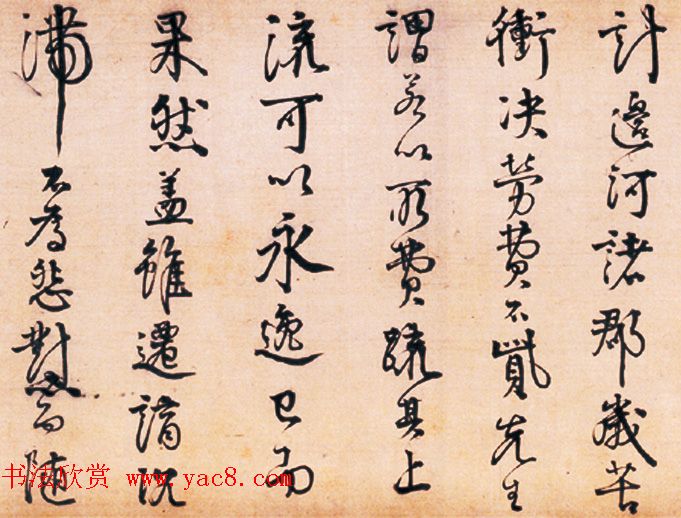 計邊河諸郡歲苦
衝決勞費不貲先生
謂若以所費疏其上
流可以永逸已而
果然蓋雖遷謫沉
滯不為愁懟而隨
书法欣赏 www.yac8.com